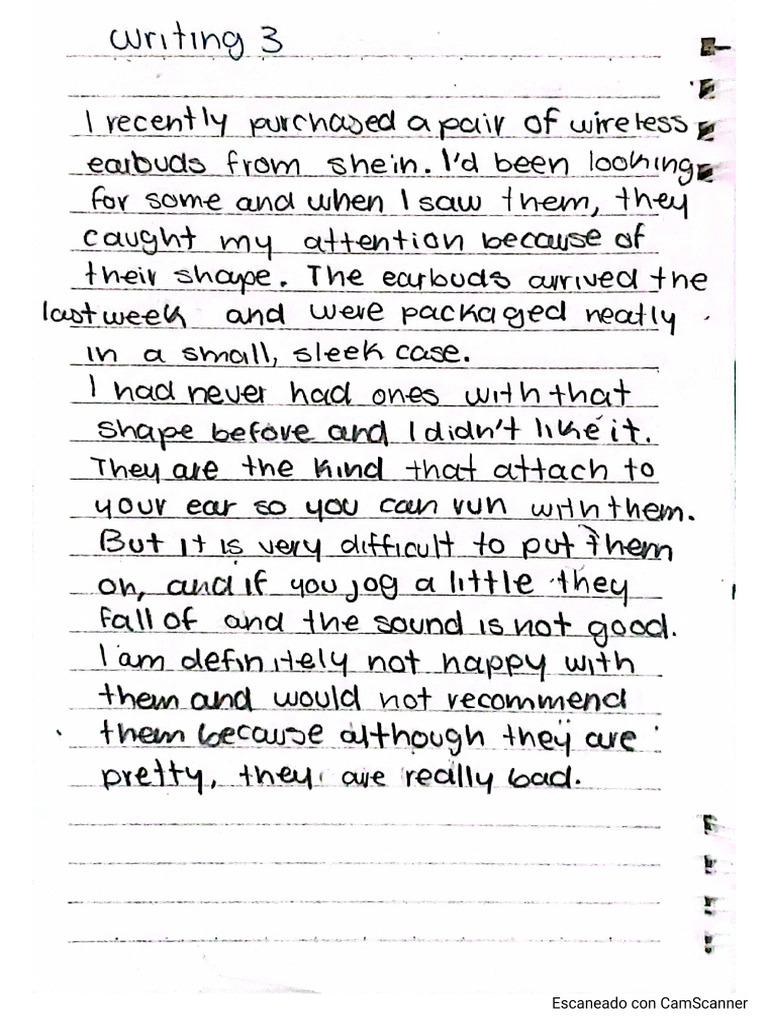 Writing 3
I recently purchased a pair of wireless
earbuds from shein. I'd been looking
for some and when I saw them, they
caught my attention because of
their shape. The earbuds arrived the
last week and were packaged neatly
in a small, sleek case.
I had never had ones with that
shape before and I didn't like it.
They are the kind that attach to
your ear so you can run with them.
But it is very difficult to put them
on, and if you jog a little they
fall of and the sound is not good.
I am definitely not happy with
them and would not recommend
them because although they are
pretty, they are really bad.
Escaneado con CamScanner